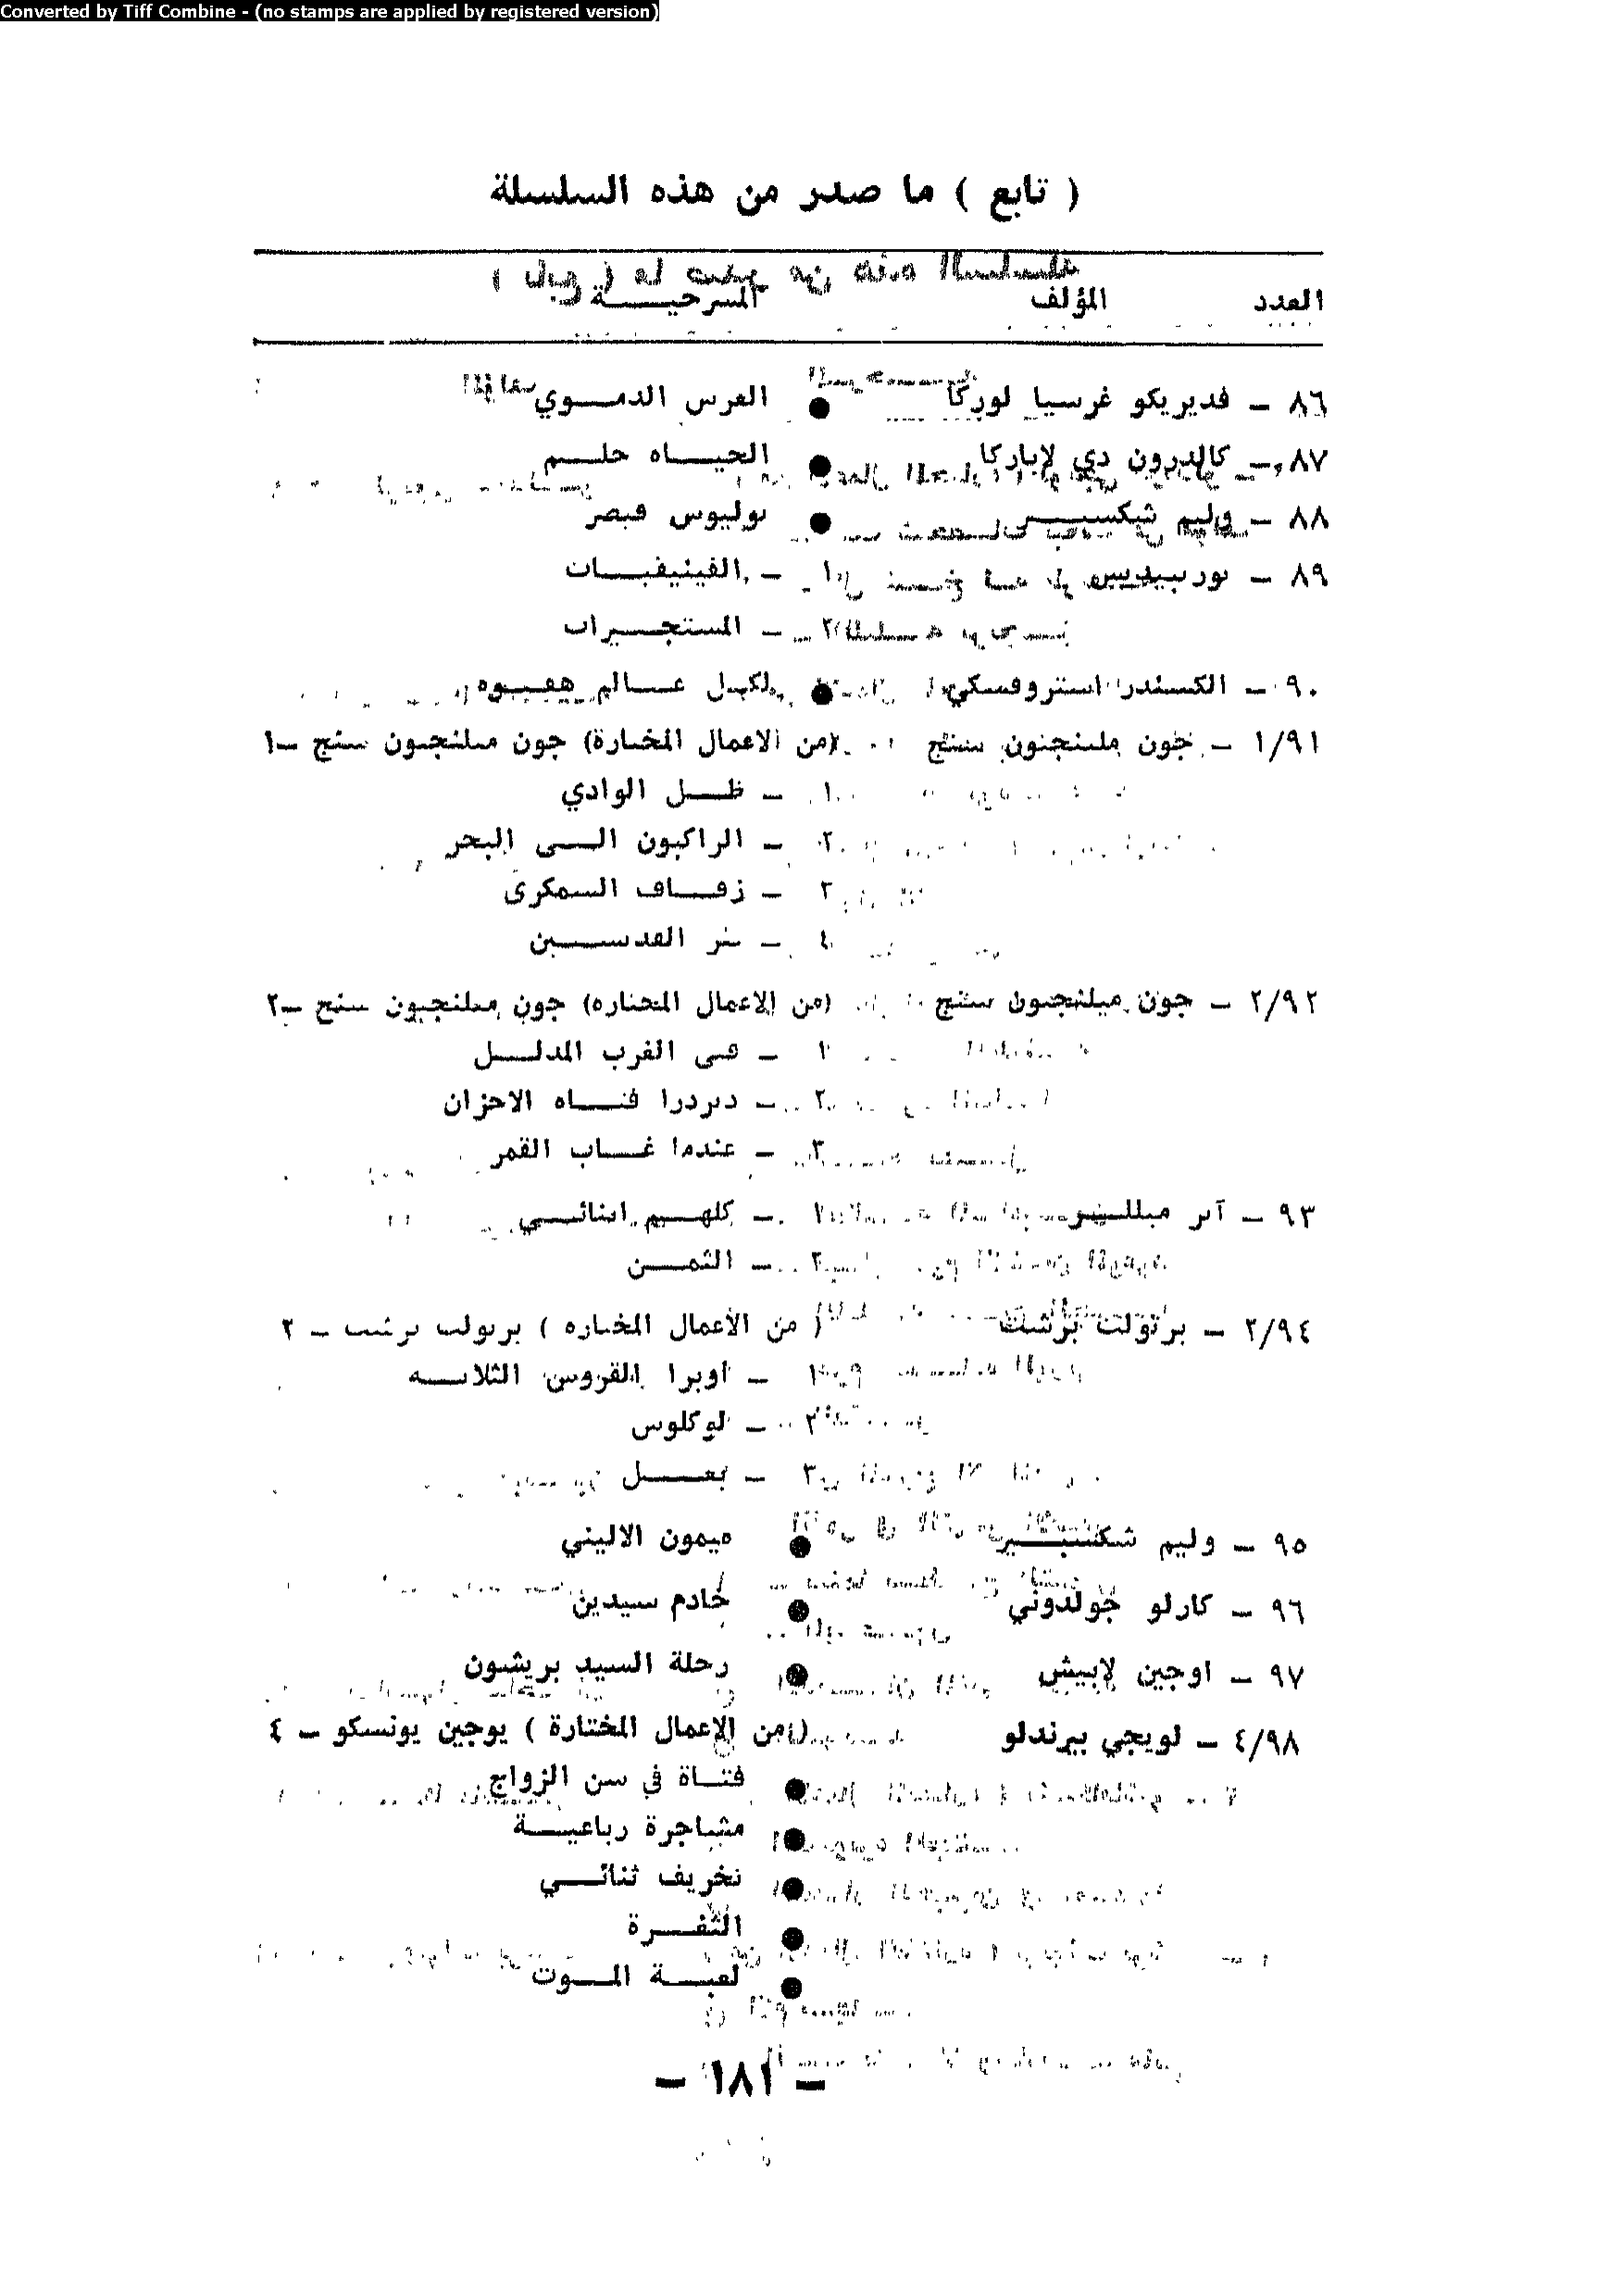 Converted by Tiff Combine - (no stamps are applied by registered version)
( تابع ) ما صدر من هذه السلسلة
العدد المؤلف المسرحيـــــة
٨٦ – فديريكو غرسيا لوركا ● العرس الدمـــوي
٨٧ – كالدرون دي لاباركا ● الحيـــاه حلـــم
٨٨ – وليم شيكسبيـــر ● يوليوس قيصر
٨٩ – يوربيديس ١ – الفينيقيـــات
٢ – المستجـــيرات
٩٠ – الكسندر استروفسكي ● لكـل عـــالم هفـــوه
١/٩١ – جون ملينجتون سنج (من الاعمال المختارة) جون ميلنجتون سنج –١
١ – ظـــل الوادي
٢ – الراكبون الـــى البحر
٣ – زفـــاف السمكرى
٤ – بئر القديســـين
٢/٩٢ – جون ميلنجتون سنج (من الاعمال المختاره) جون ميلنجتون سنج –٢
١ – فتى الغرب المدلـــل
٢ – ديردرا فتـــاه الاحزان
٣ – عندما غـــاب القمر
٩٣ – آثر ميللـــر ١ – كلهـــم ابنائـــي
٢ – الثمـــن
٢/٩٤ – برتولت برشت ( من الأعمال المختاره ) برتولت برشت – ٢
١ – اوبرا القروش الثلاثـــه
٢ – لوكلوس
٣ – بعـــل
٩٥ – وليم شكسبـــير ● تيمون الاثيني
٩٦ – كارلو جولدوني ● خادم سيدين
٩٧ – اوجين لابيش ● رحلة السيد بريشون
٤/٩٨ – لويجي بيرندلو (من الاعمال المختارة ) يوجين يونسكو – ٤
● فتـــاة في سن الزواج
● مشاجرة رباعيـــة
● تخريف ثنائـــي
● الثغـــرة
● لعبـــة المـــوت
– ١٨١ –